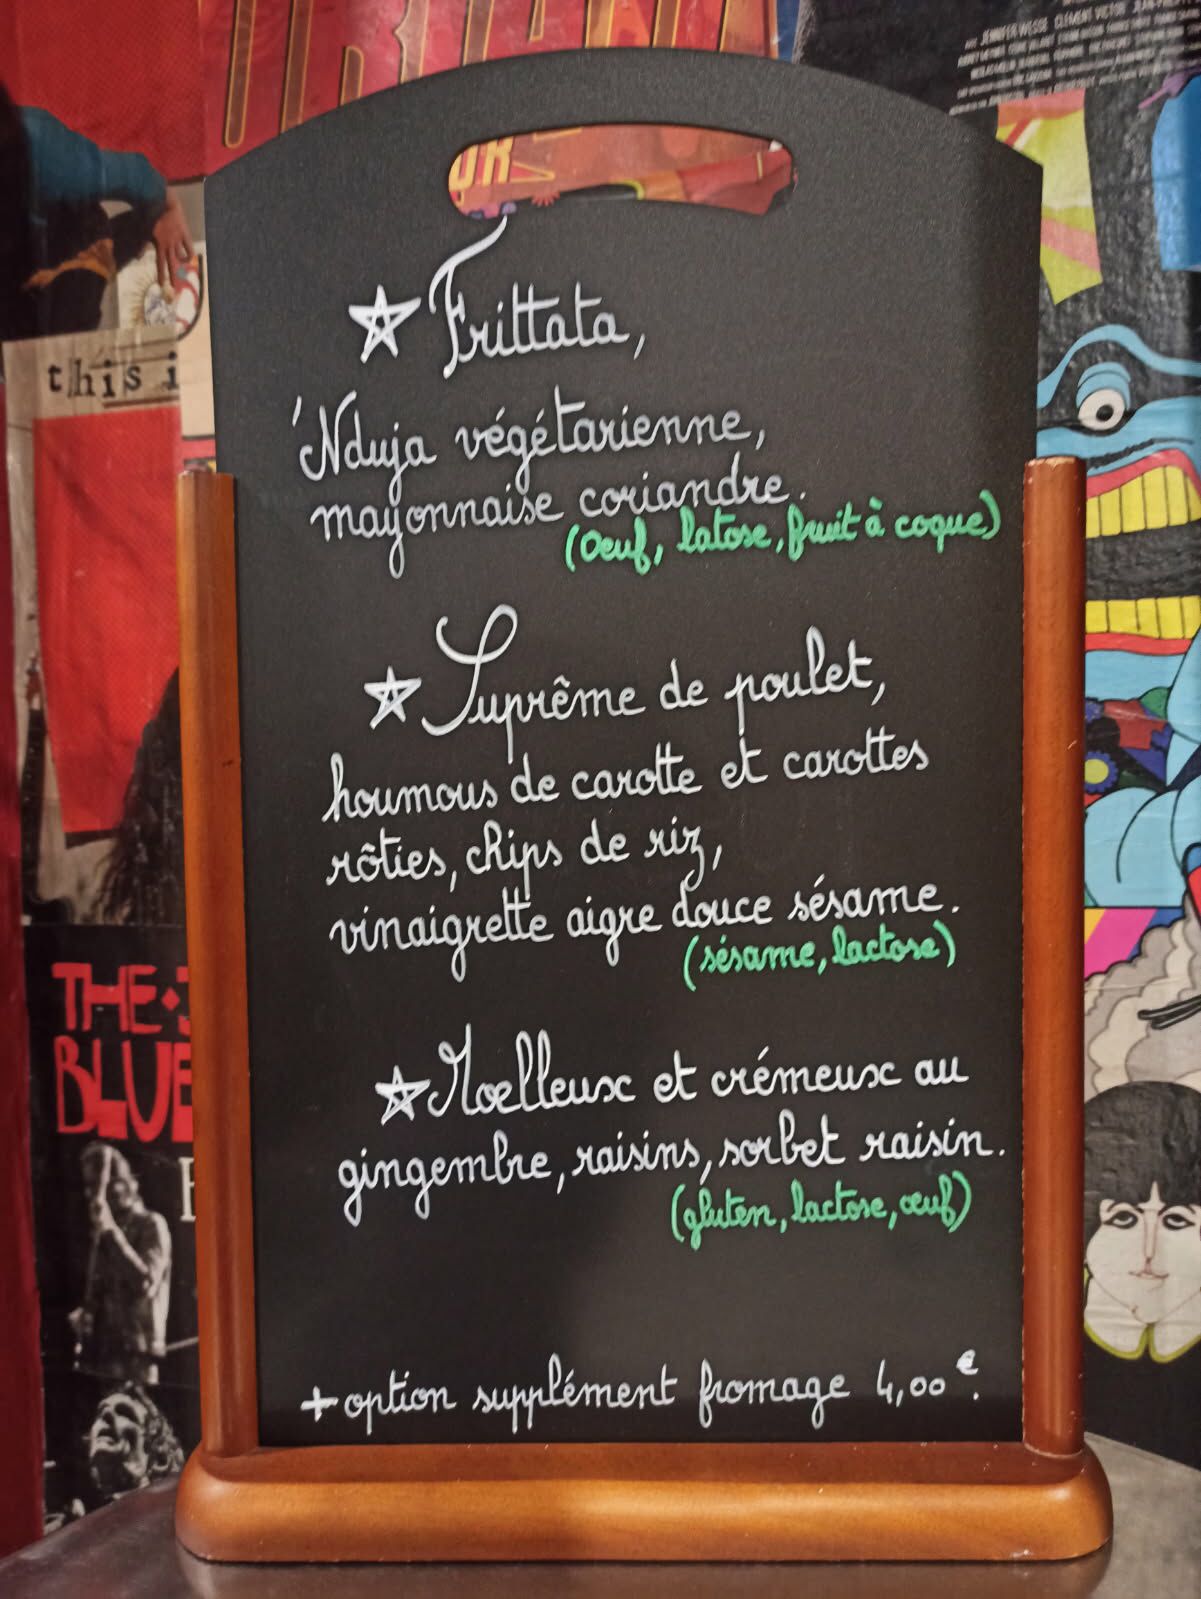 JENNIFER WEBBE CLEMENT VICTOR
OR
this i
★ Frittata,
'Nduja végétarienne,
mayonnaise coriandre.
(Oeuf, latose, fruit à coque)
★ Suprême de poulet,
houmous de carotte et carottes
rôties, chips de riz,
vinaigrette aigre douce sésame.
(sésame, lactose)
THE
BLUE
★ Moelleux et crémeux au
gingembre, raisins, sorbet raisin.
(gluten, lactose, œuf)
+ option supplément fromage 4,00€.